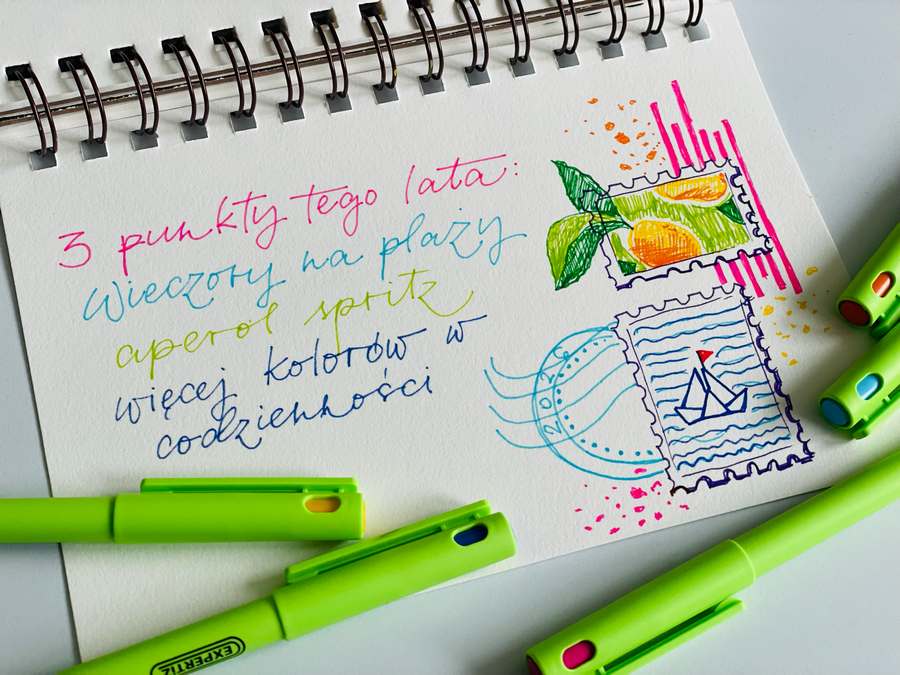 3 punkty tego lata:
Wieczory na plaży
aperol spritz
więcej kolorów w
codzienności
EXPERTIZ